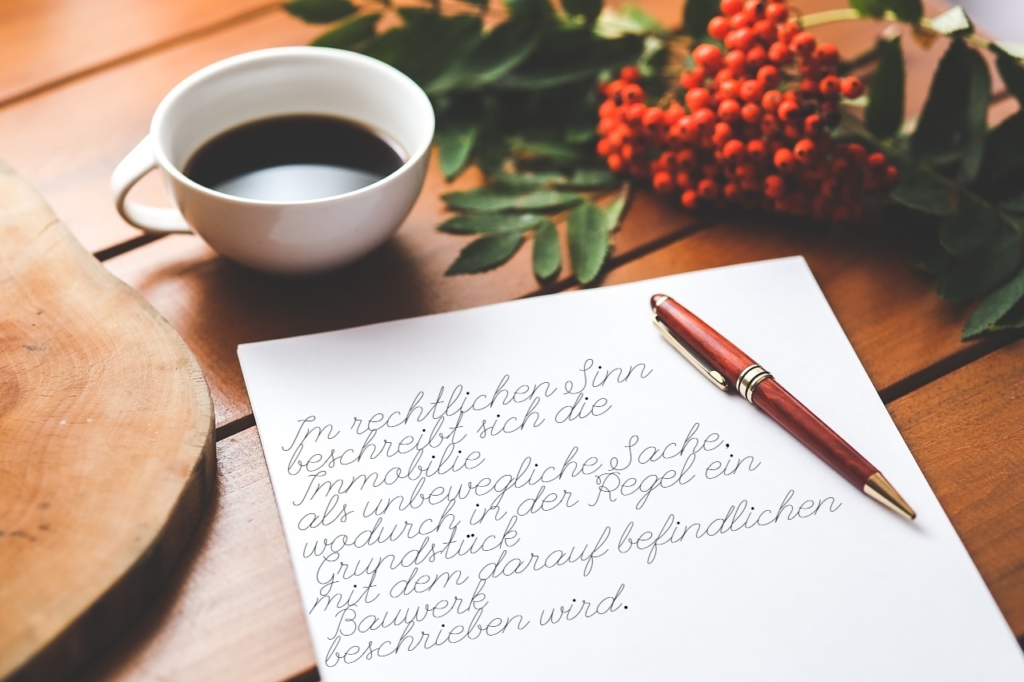 Im rechtlichen Sinn
beschreibt sich die
Immobilie
als unbewegliche Sache,
wodurch in der Regel ein
Grundstück
mit dem darauf befindlichen
Bauwerk
beschrieben wird.